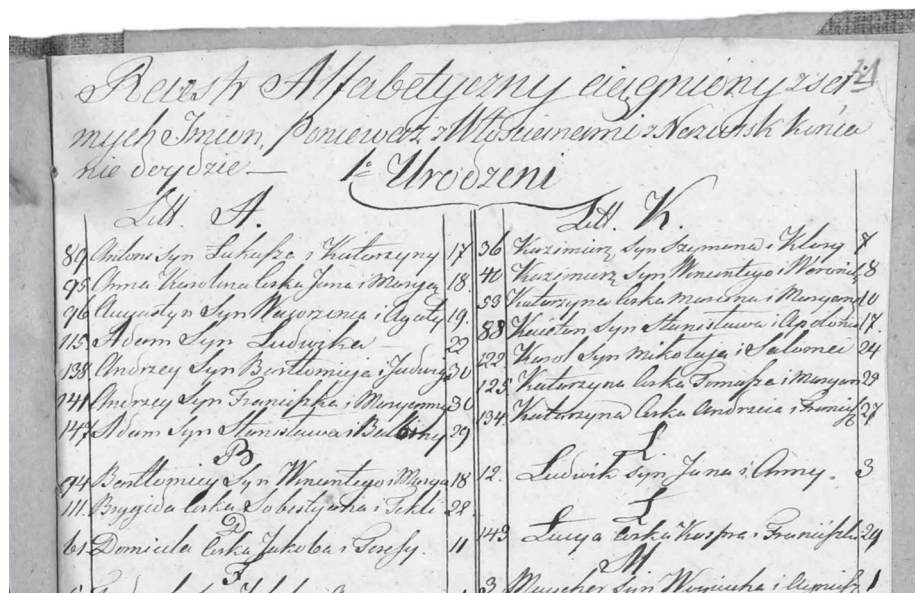 Reiestr Alfabetyczny ciągniony z sa-
mych Imion, Ponieważ z Włościanami z Nazwisk końca
nie doydzie.—
1o Urodzeni
Litt. A.
89 Antoni Syn Łukasza i Katarzyny 17
95 Anna Karolina Corka Jana i 18.
96 Augustyn Syn Wawrzenca i Agaty 19.
115 Adam Syn Ludwika — 22
138 Andrzey Syn Bartłomieja i Jadwigi 30
141 Andrzey Syn Franciszka i Maryanny 30
147 Adam Syn Stanisława i Balbiny 29
B
94 Bartłomiey Syn Wincentego i 18
111. Brygida Corka Sobestyana i Tekli 22.
D
61. Domicela Corka Jakoba i Teresy. 11
F
Litt. K.
36 Kazimirz Syn Szymona i Klary 7
40 Kazimirz Syn Wincentego i Weroniki 8
53 Katarzyna Corka Marcina i Maryanny 10
88 Kaietan Syn Stanisława i Apolonii 17.
122 Karol Syn Mikołaja i Salomei 24
125 Katarzyna Corka Tomasza i Maryanny 25
134. Katarzyna Corka Andrzeia i 27
L
12. Ludwik Syn Jana i Anny. 3
Ł
143 Łucya Corka Kaspra i Franciszki 29
M
3 Syn Woyciecha i 1